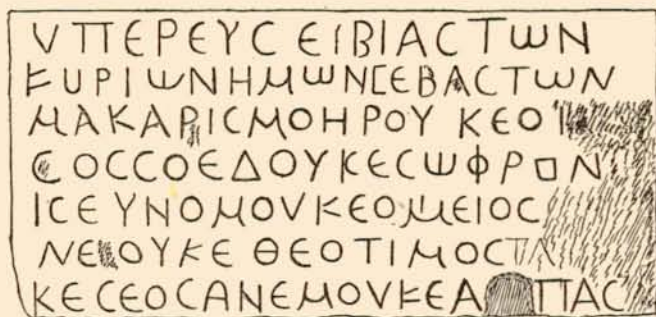 ΥΠΕΡΕΥϹΕΙΒΙΑϹΤωΝ
ΚΥΡΙωΝΗΜωΝϹΕΒΑϹΤωΝ
ΜΑΚΑΡΙϹΜΟΗΡΟΥ ΚΕΟΙ
ϹΟϹϹΟΕΔΟΥΚΕϹωΦΡΟΝ
ΙϹΕΥΝΟΜΟΥΚΕΟΜΕΙΟϹ
ΝΕΙΟΥΚΕ ΘΕΟΤΙΜΟϹΤΑ
ΚΕϹΕΟϹΑΝΕΜΟΥΚΕΑ ΠΑϹ